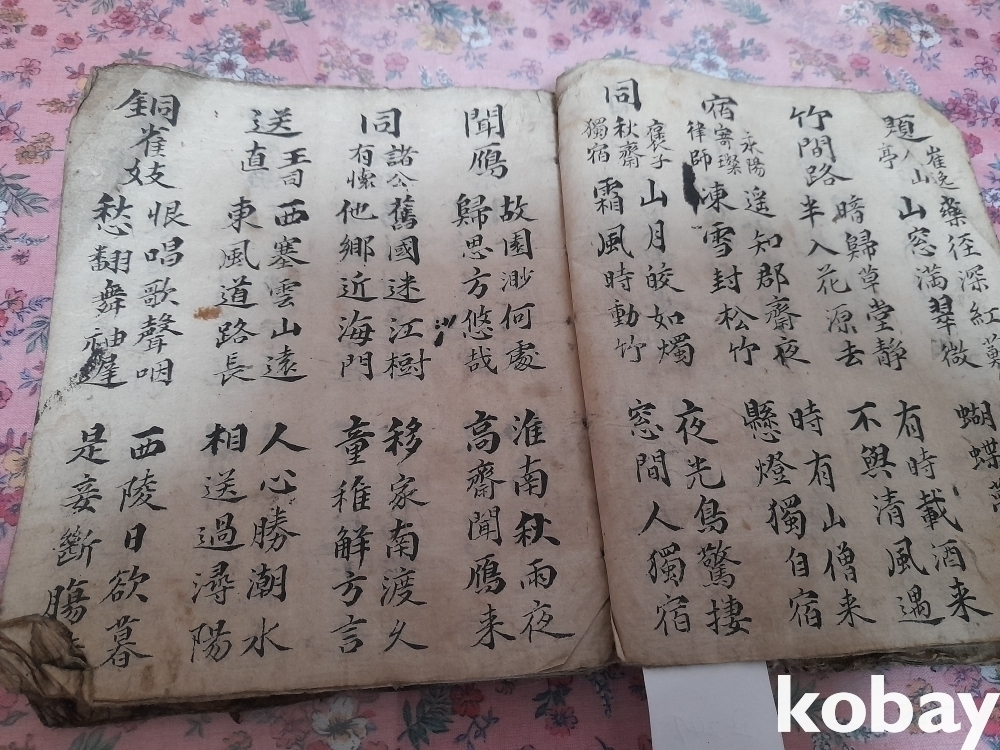 題崔逸人山亭
藥径深紅
山窓滿翠微
蝴蝶
竹間路
暗歸草堂靜
半入花源去
有時載酒来
不與清風遇
宿永陽寄璨律師
遥知郡齋夜
凍雪封松竹
時有山僧来
懸燈獨自宿
同褒子秋齋獨宿
山月皎如燭
霜風時動竹
夜光鳥驚捿
窓間人獨宿
聞鴈
故園渺何處
歸思方悠哉
淮南秋雨夜
高齋聞鴈来
同諸公有懷
舊國迷江樹
他鄉近海門
移家南渡久
童稚解方言
送王司直
西塞雲山遠
東風道路長
人心勝潮水
相送過潯陽
銅雀妓
恨唱歌聲咽
愁翻舞袖遲
西陵日欲暮
是妾斷腸
kobay